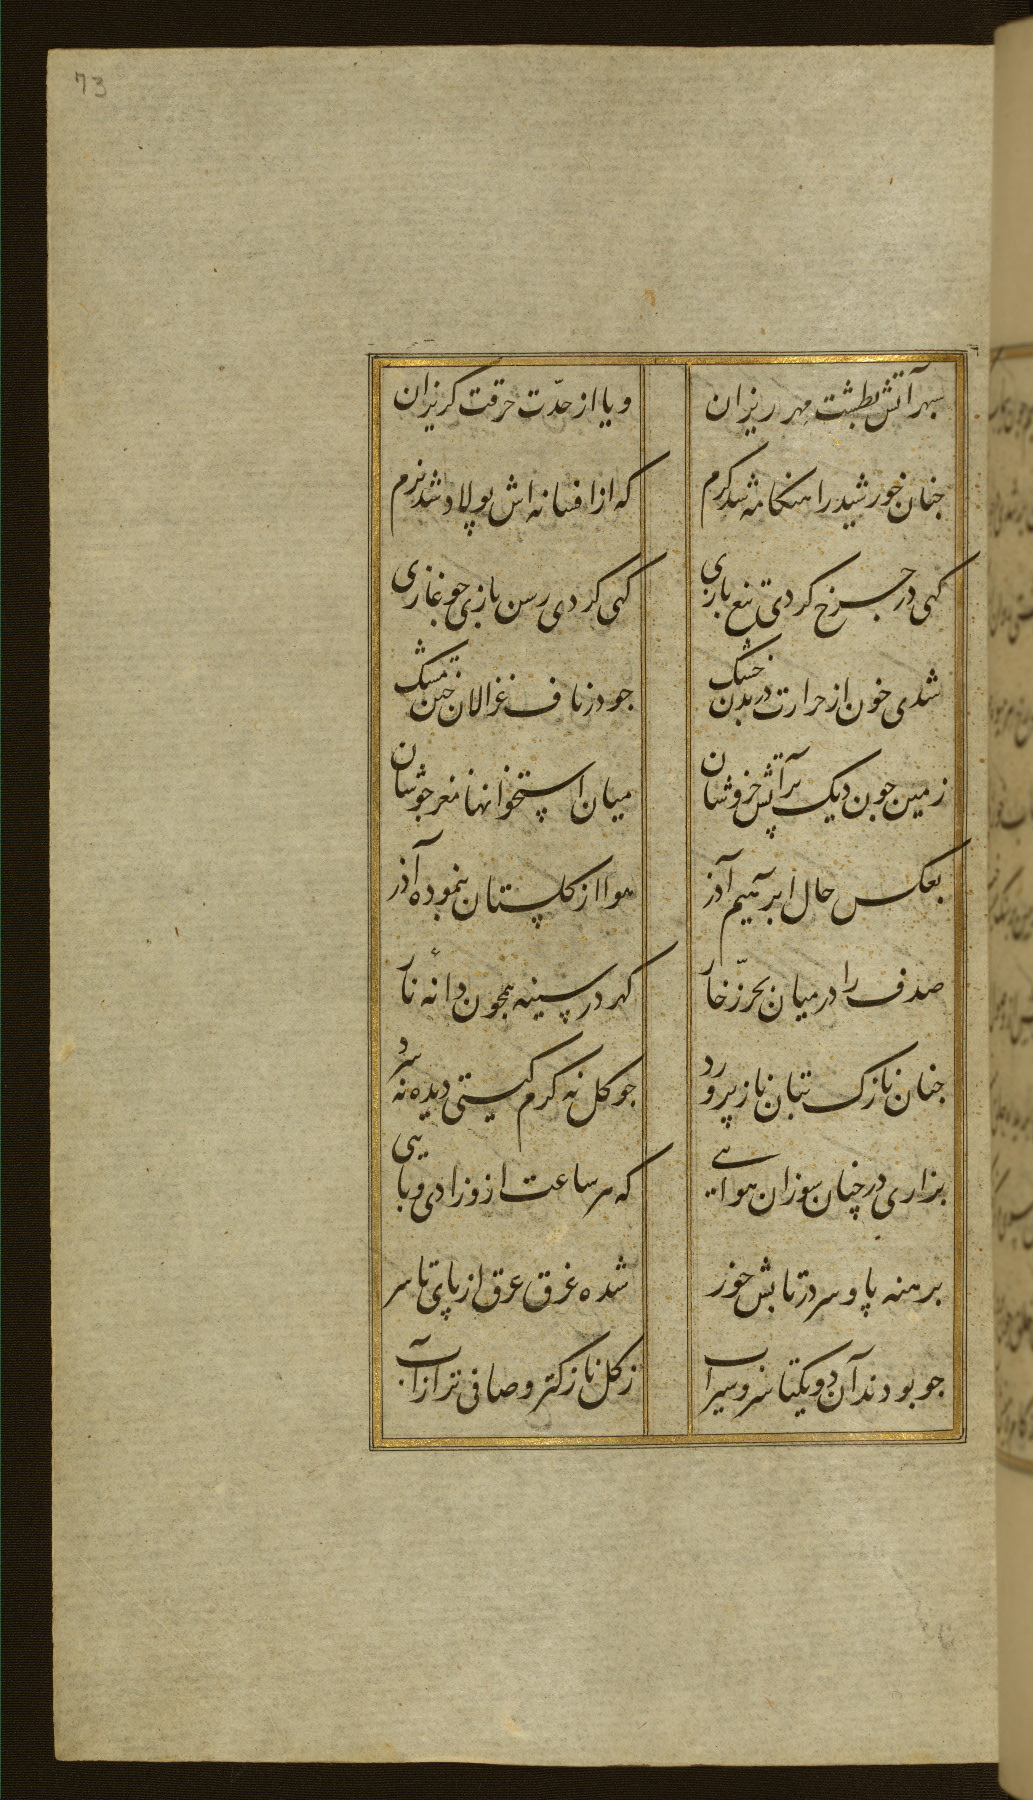 73
سپهر آتش بطشت مهر ریزان و یا از حدّت حرقت گریزان
جنان خورشید را هنکامه شد کرم که از افسانه اش پولاد شد نرم
کهی در جرخ کردی تیغ بازی کهی کردی رسن بازی جو غازی
شدی خون از حرارت در بدن خشک جو در ناف غزالان ختن مشک
زمین جون دیک بر آتش خروشان میان استخوانها مغز جوشان
بعکس حال ابرهیم آذر هوا از کلستان بنموده آذر
صدف را در میان بحر زخّار کهر در سینه همجون دانهٔ نار
جنان نازک تنان ناز پرورد جو کل نه کرم کیتی دیده نه سرد
بزاری در چنان سوزان هوایی که هر ساعت ازو زادی وبایی
برهنه پا و سر در تابش خور شده غرق عرق از پای تا سر
جو بودند آن دو یکتا سرو سیراب ز کل نازکتر و صافی تر از آب